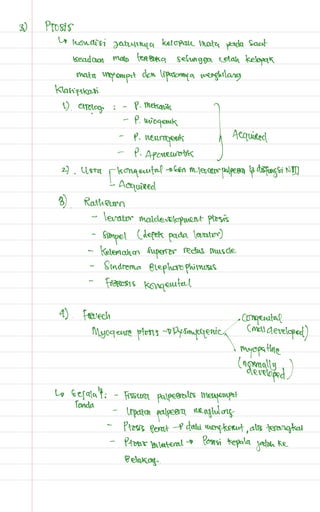 3) Ptosis
↳ kondisi jatuhnya kelopak mata pada saat
keadaan mata terbuka sehingga celah kelopak
mata menyempit dan lipatannya menghilang
Klasifikasi
1) etiologi : - P. mekanik
- P. miogenik
- P. neurogenik
- P. Aponeurotik
Acquired
2). Usia kongenital → m. levator palpebra / disfungsi N III
Acquired
3)
- levator maldevelopment ptosis
- Simpel (defek pada levator)
- Kelemahan superior rectus muscle
- Sindroma Blepharophimosis
- kongenital
4)
Myogenic ptosis → Dysmyogenic
Congenital
(maldeveloped)
myopathic
(normally
developed)
↳ Gejala / : - Fissura palpebralis menyempit
Tanda - lipatan palpebra menghilang
- Ptosis berat → dahi mengkerut, alis terangkat
- Ptosis bilateral → Posisi kepala jatuh ke
Belakang.